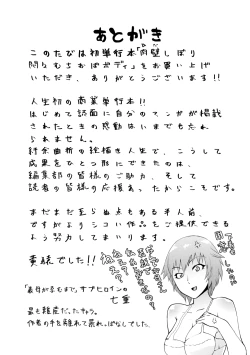 あとがき
このたびは初単行本「肉壁しぼり
悶々むちおばボディ」をお買い上げ
いただき、ありがとうございます!!
人生初の商業単行本!!
はじめて誌面に自分のマンガが掲載
されたときの感動はいまでも忘れ
られません。
紆余曲折の経描き人生と、こうして
成果をひとつ形にできたのは、
編集部の皆様のご助力、そして
読者の皆様の応援あったからこそです。
まだまだ至らぬ点もある半人前、
ですがよりシコい作品をご提供できる
よう努力してまいります。
黄緑でした!!
サブヒロインの
七重
最も難産だったキャラ。
作者の手を離れて荒れっぱなしでした。